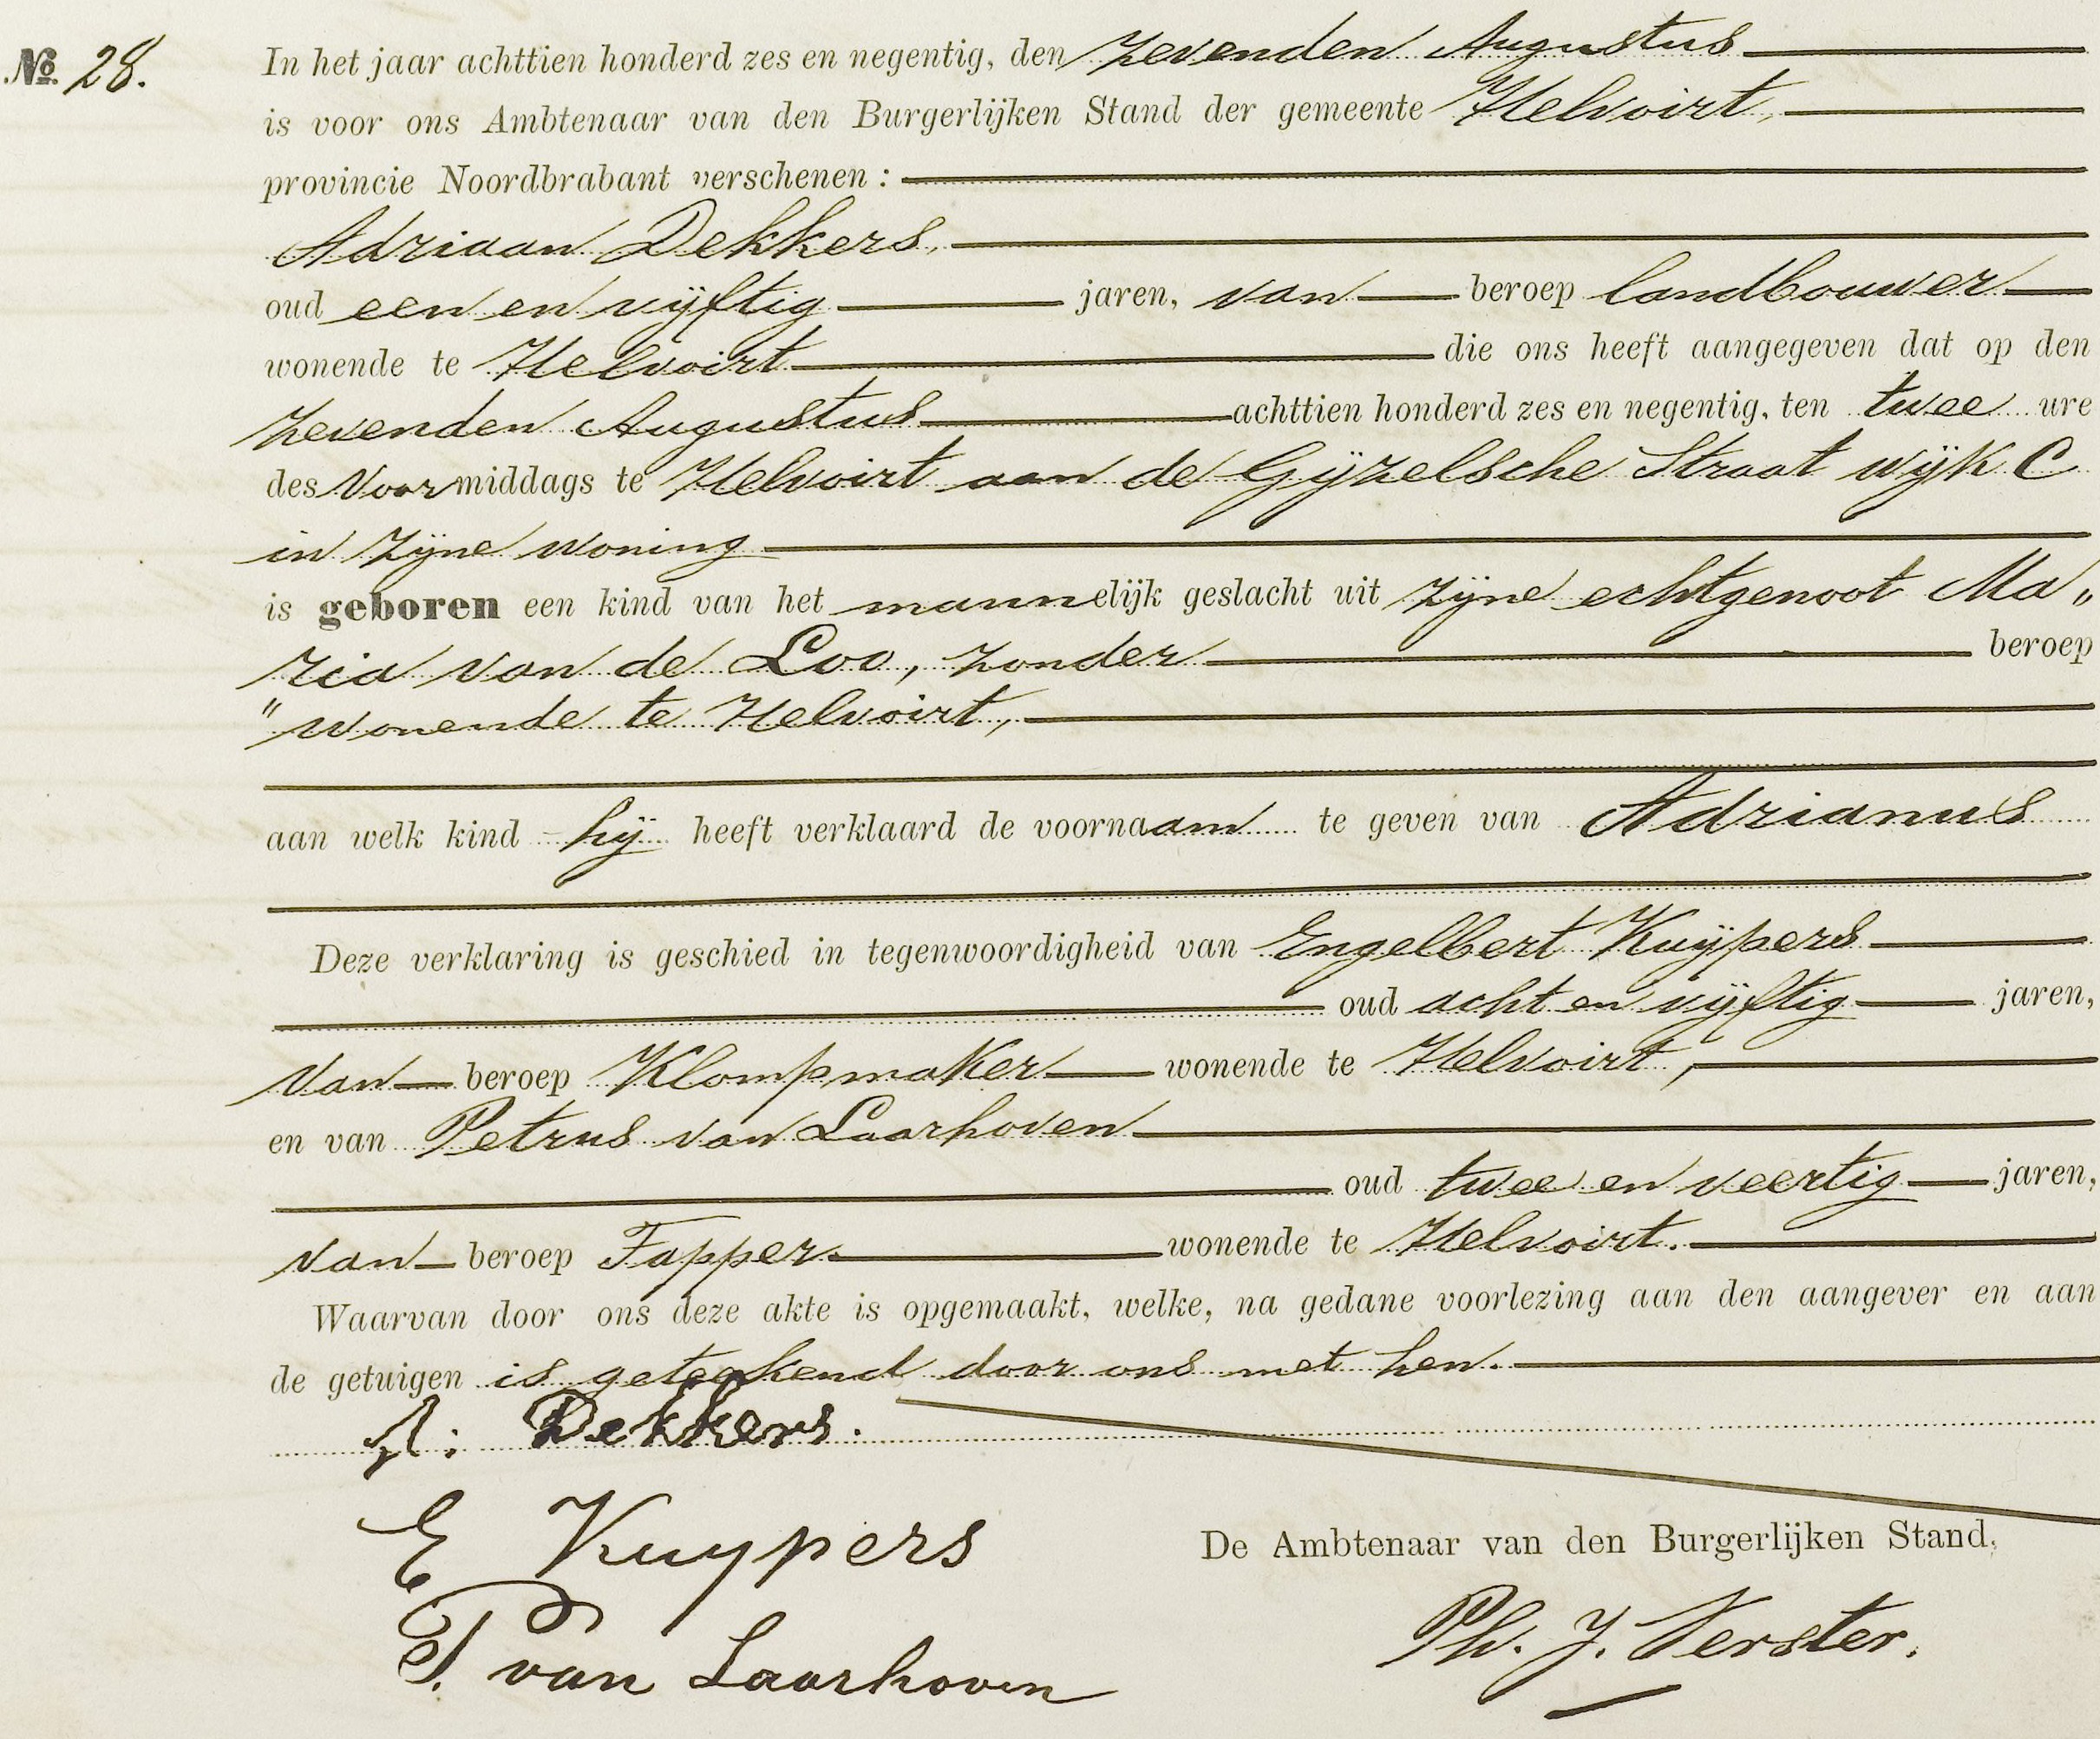 No. 28. In het jaar achttien honderd zes en negentig, den zevenden Augustus
is voor ons Ambtenaar van den Burgerlijken Stand der gemeente Helvoirt,
provincie Noordbrabant verschenen :
Adriaan Dekkers,
oud een en vijftig jaren, van beroep landbouwer
wonende te Helvoirt die ons heeft aangegeven dat op den
zevenden Augustus achttien honderd zes en negentig, ten twee ure
des Voormiddags te Helvoirt aan de Gijzelsche Straat wijk C
in zijne woning
is geboren een kind van het mannelijk geslacht uit zijne echtgenoot Ma„
ria van de Loo, zonder beroep
" wonende te Helvoirt,
aan welk kind hij heeft verklaard de voornaam te geven van Adrianus
Deze verklaring is geschied in tegenwoordigheid van Engelbert Kuijpers
oud acht en vijftig jaren,
van beroep Klompmaker wonende te Helvoirt,
en van Petrus van Laarhoven
oud twee en veertig jaren,
van beroep Tapper wonende te Helvoirt.
Waarvan door ons deze akte is opgemaakt, welke, na gedane voorlezing aan den aangever en aan
de getuigen is geteekend door ons met hen.
A: Dekkers.
E Kuypers
De Ambtenaar van den Burgerlijken Stand,
P. van Laarhoven
Ph. J. Verster.